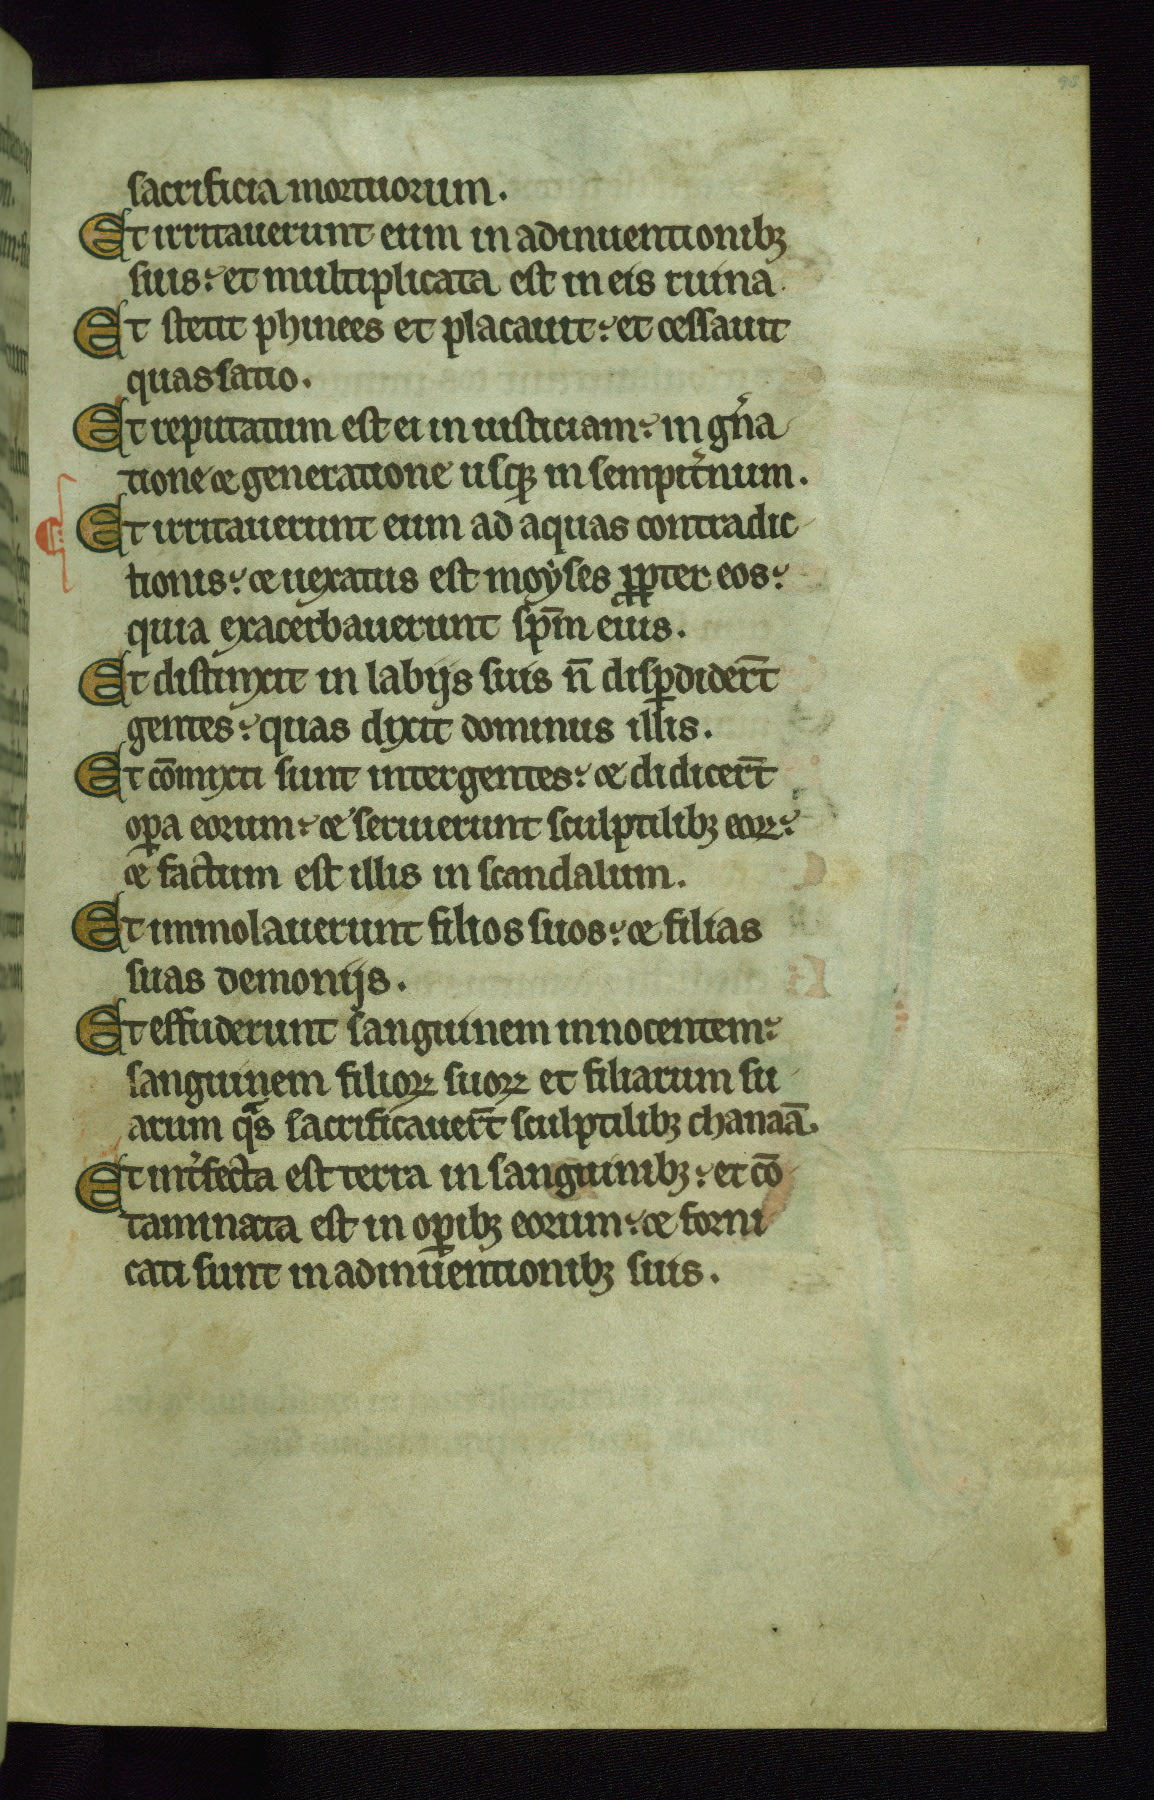 95
sacrificia mortuorum.
Et irritauerunt eum in adinuentionibꝫ
suis: et multiplicata est in eis ruina.
Et stetit phinees et placauit: et cessauit
quassatio.
Et reputatum est ei in iusticiam: in gn̄a
tione ⁊ generatione usqꝫ in sempit̄num.
Et irritauerunt eum ad aquas contradic
tionis: ⁊ uexatus est moẏses ꝓpter eos:
quia exacerbauerunt sp̄m eius.
Et distinxit in labijs suis n̄ disꝑdider̄t
gentes: quas dixit dominus illis.
Et cōmixti sunt inter gentes: ⁊ didicer̄t
oꝑa eorum: ⁊ seruierunt sculptilibꝫ eoꝝ:
⁊ factum est illis in scandalum.
Et immolauerunt filios suos: ⁊ filias
suas demonijs.
Et effuderunt sanguinem innocentem:
sanguinem filioꝝ suoꝝ et filiarum su
arum qᵃs sacrificauer̄t sculptilibꝫ chanaā.
Et int̄fecta est terra in sanguinibꝫ: et cō
taminata est in oꝑibꝫ eorum: ⁊ forni
cati sunt in adinuentionibꝫ suis.